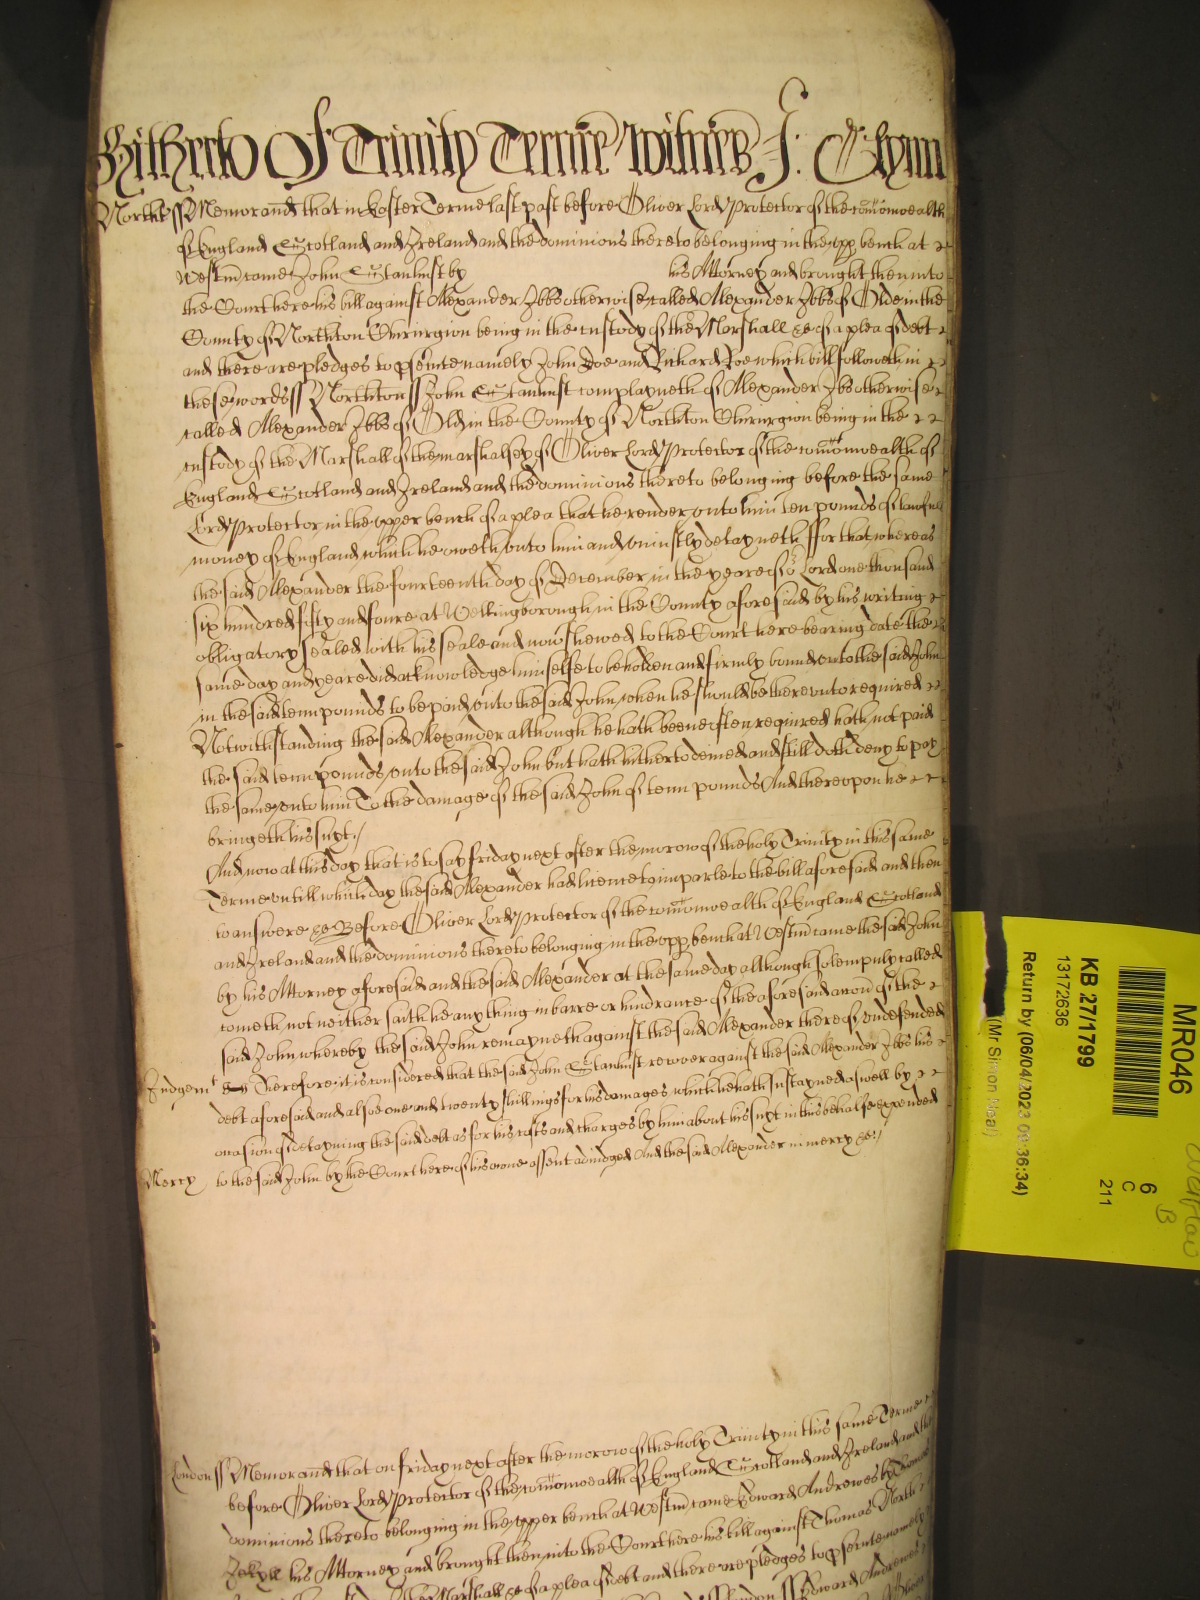 Hitherto Of Trinity Terme witnes J: Glynn
Northt ss Memorand that in Easter Terme last past before Oliver Lord Protector of the comonwealth
of England Scotland and Ireland and the dominions thereto belonging in the upp bench at
Westm came John Stanhust by his Attorney and brought then into
the Court here his bill against Alexander Ibbs otherwise called Alexander Ibbs of Olde in the
County of Northton Chirurgion being in the custody of the Marshall &c of a plea of debt
and there are pledges to psecute namely John Doe and Richard Roe which bill followeth in
these words ss Northton ss John Stanhust complayneth of Alexander Ibbs otherwise
called Alexander Ibbs of Old in the County of Northton Chirurgion being in the
custody of the Marshall of the marshalsey of Oliver Lord Protector of the comonwealth of
England Scotland and Ireland and the dominions thereto belonging before the same
Lord Protector in the upper bench of a plea that he render unto him ten pounds of lawfull
money of England which he oweth unto him and uniustly detayneth ffor that whereas
the said Alexander the fourteenth day of December in the yeare of or Lord one thousand
six hundred fifty and foure at Wellingborough in the County aforesaid by his writing
obligatory sealed with his seale and now shewed to the Court here bearing date the
same day and yeare did acknowledge himselfe to be holden and firmly bound unto the said John
in the said tenn pounds to be paid unto the said John when he should be thereunto required
Notwithstanding the said Alexander although he hath beene often required hath not paid
the said tenn pounds unto the said John but hath hitherto denied and still doth deny to pay
the same unto him To the damage of the said John of tenn pounds And thereupon he
bringeth his suyt /
And now at this day that is to say friday next after the morow of the holy Trinity in this same
Terme untill which day the said Alexander had licence to imparle to the bill aforesaid and then
to answere &c Before Oliver Lord Protector of the comonwealth of England Scotland
and Ireland and the dominions thereto belonging in the upp bench at Westm came the said John
by his Attorney aforesaid and the said Alexander at the same day although solempnly called
cometh not neither saith he any thing in barre or hindrance of the aforesaid accon of the
said John whereby the said John remayneth against the said Alexander thereof undefended
Judgemt Therefore it is considered that the said John Stanhust recover against the said Alexander Ibbs his
debt aforesaid and alsoe one and twenty shillings for his damages which he hath sustayned aswell by
occasion of detayning the said debt as for his costs and charges by him about his suyt in this behalfe expended
Mercy to the said John by the Court here of his owne assent adiudged And the said Alexander in mercy &c /
London ss Memorand that on friday next after the morow of the holy Trinity in this same Terme
before Oliver Lord Protector of the comonwealth of England Scotland and Ireland and the
dominions thereto belonging in the upper bench at Westm came Edward Andrewes by Thomas
Jekyll his Attorney and brought then into the Court here his bill against Thomas North
Marshall &c of a plea of debt and there are pledges to psecute namely
London ss Edward Andrewes
Oliver
MR046
KB 27/1799
13172636
Return by (06/04/2023 09:36:34)
(Mr Simon Neal)
6
C
211
B